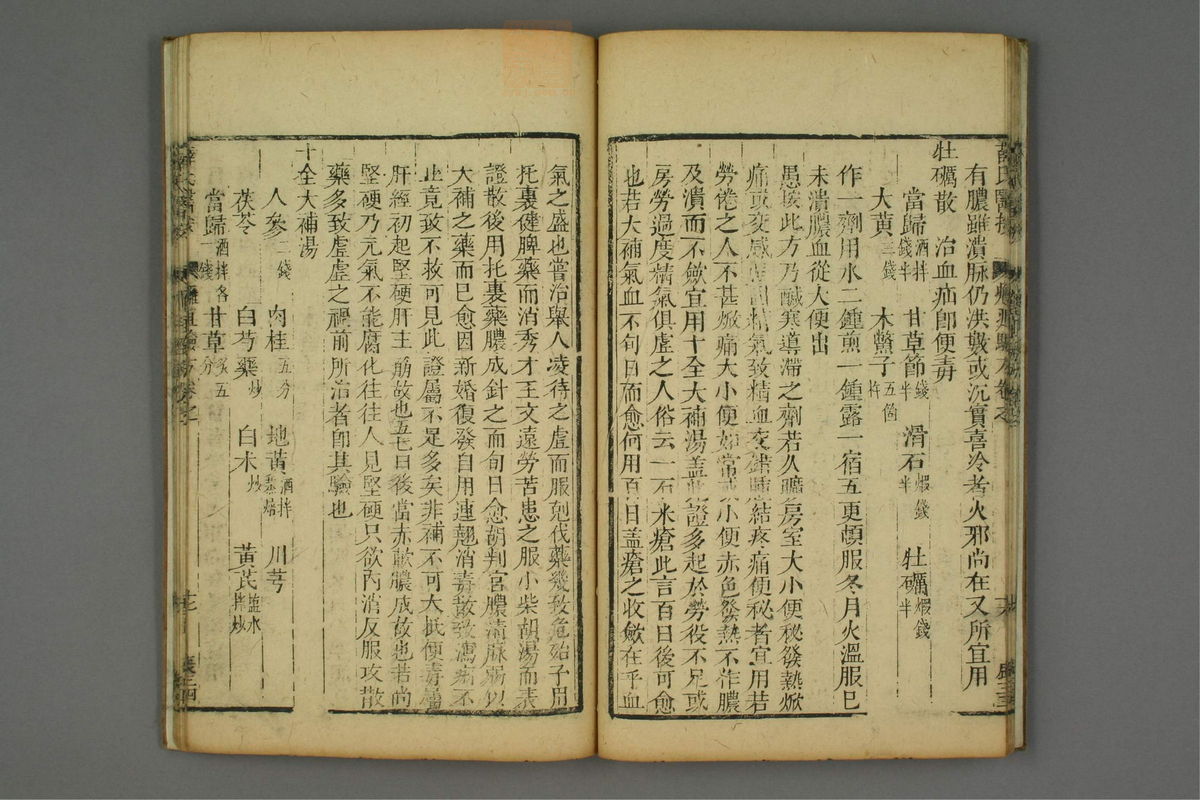 有膿雖潰脉仍洪數或沉實喜冷者火邪尚在又所宜用
牡礪散　治血疝卽便毒
當歸酒拌錢半　甘草節錢半　滑石煆錢半　牡礪煆錢半
大黃三錢　木鱉子五箇杵
作一劑用水二鍾煎一鍾露一宿五更頓服冬月火溫服已
未潰膿血從大便出
愚按此方乃鹹寒導滯之劑若久曠房室大小便秘發熱焮
痛或交感精氣致精血交結疼痛便秘者宜用若
勞倦之人不甚焮痛大小便如常或小便赤色發熱不作膿
及潰而不斂宜用十全大補湯蓋此證多起於勞役不足或
房勞過度精氣俱虛之人俗云一石米瘡此言百日後可愈
也若大補氣血不旬日而愈何用百日蓋瘡之收斂在乎血
氣之盛也嘗治舉人凌待之虛而服剋伐藥幾致危殆予用
托裏健脾藥而消秀才王文遠勞苦患之服小柴胡湯而表
證散後用托裏藥膿成針之而旬日愈胡判官膿清脉弱以
大補之藥而已愈因新婚復發自用連翹消毒散致瀉痢不
止竟致不救可見此證屬不足多矣非補不可大抵便毒屬
肝經初起堅硬肝主筋故也五七日後當赤軟膿成故也若尚
堅硬乃元氣不能腐化往往人見堅硬只欲內消反服攻散
藥多致虛虛之禍前所治者卽其驗也
十全大補湯
人參二錢　肉桂五分　地黃酒拌蒸焙　川芎
茯苓　白芍藥炒　白朮炒　黃芪鹽水拌炒
當歸酒拌各一錢　甘草炙五分